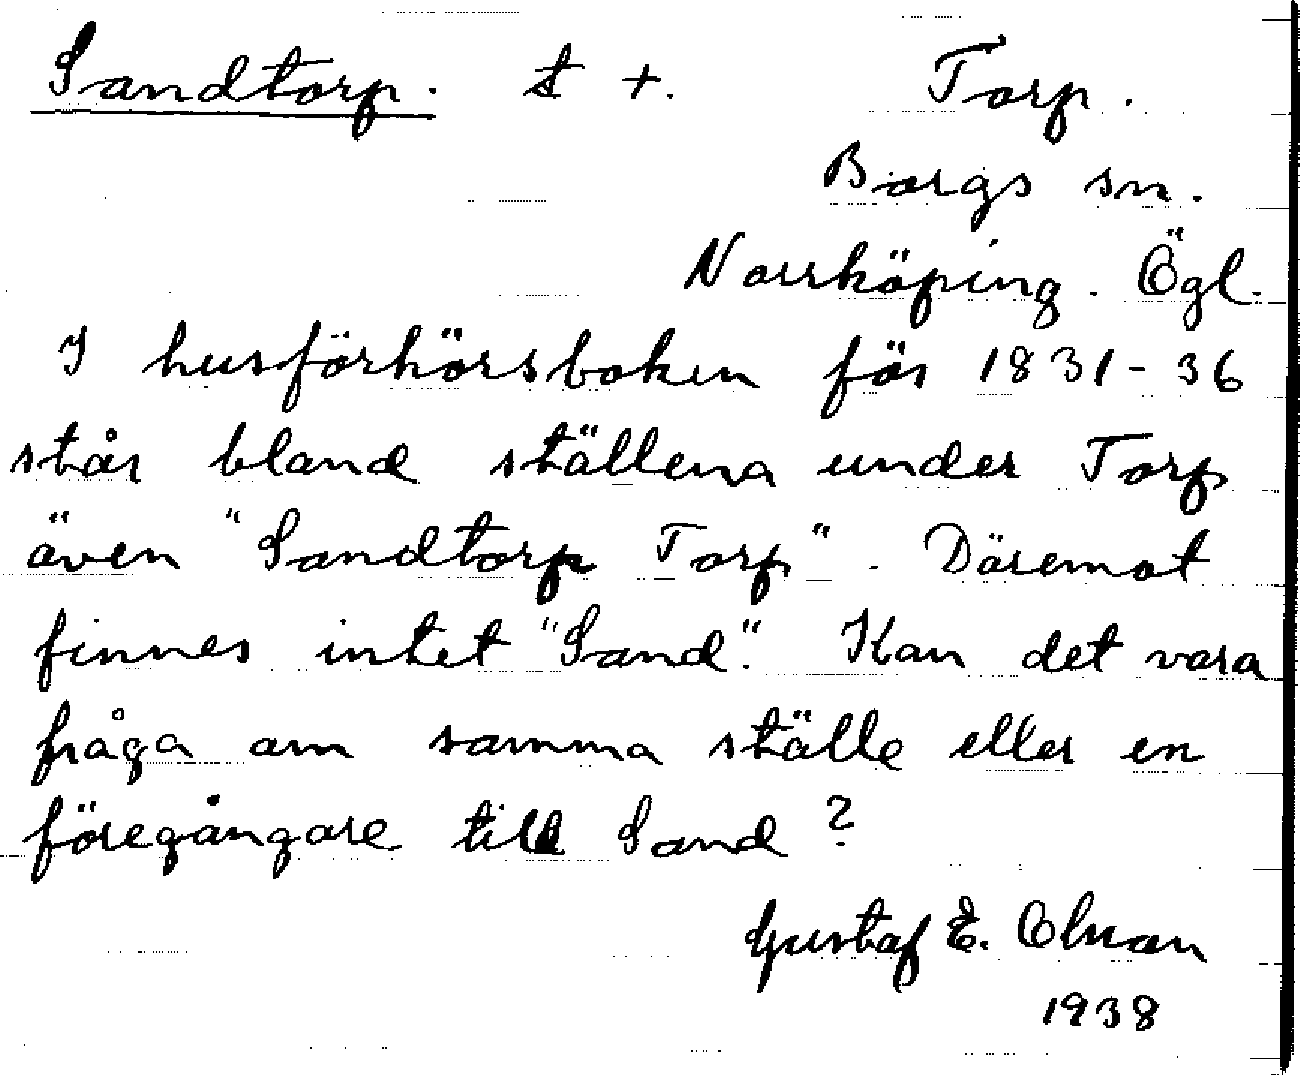 Sandtorp. t +. Torp.
Borgs sn.
Norrköping. Ögl.
I husförhörsboken för 1831-36
står bland ställena under Torp
även "Sandtorp Torp". Däremot
finnes intet "Sand". Kan det vara
fråga om samma ställe eller en
föregångare till Sand?
Gustaf E. Olson
1938